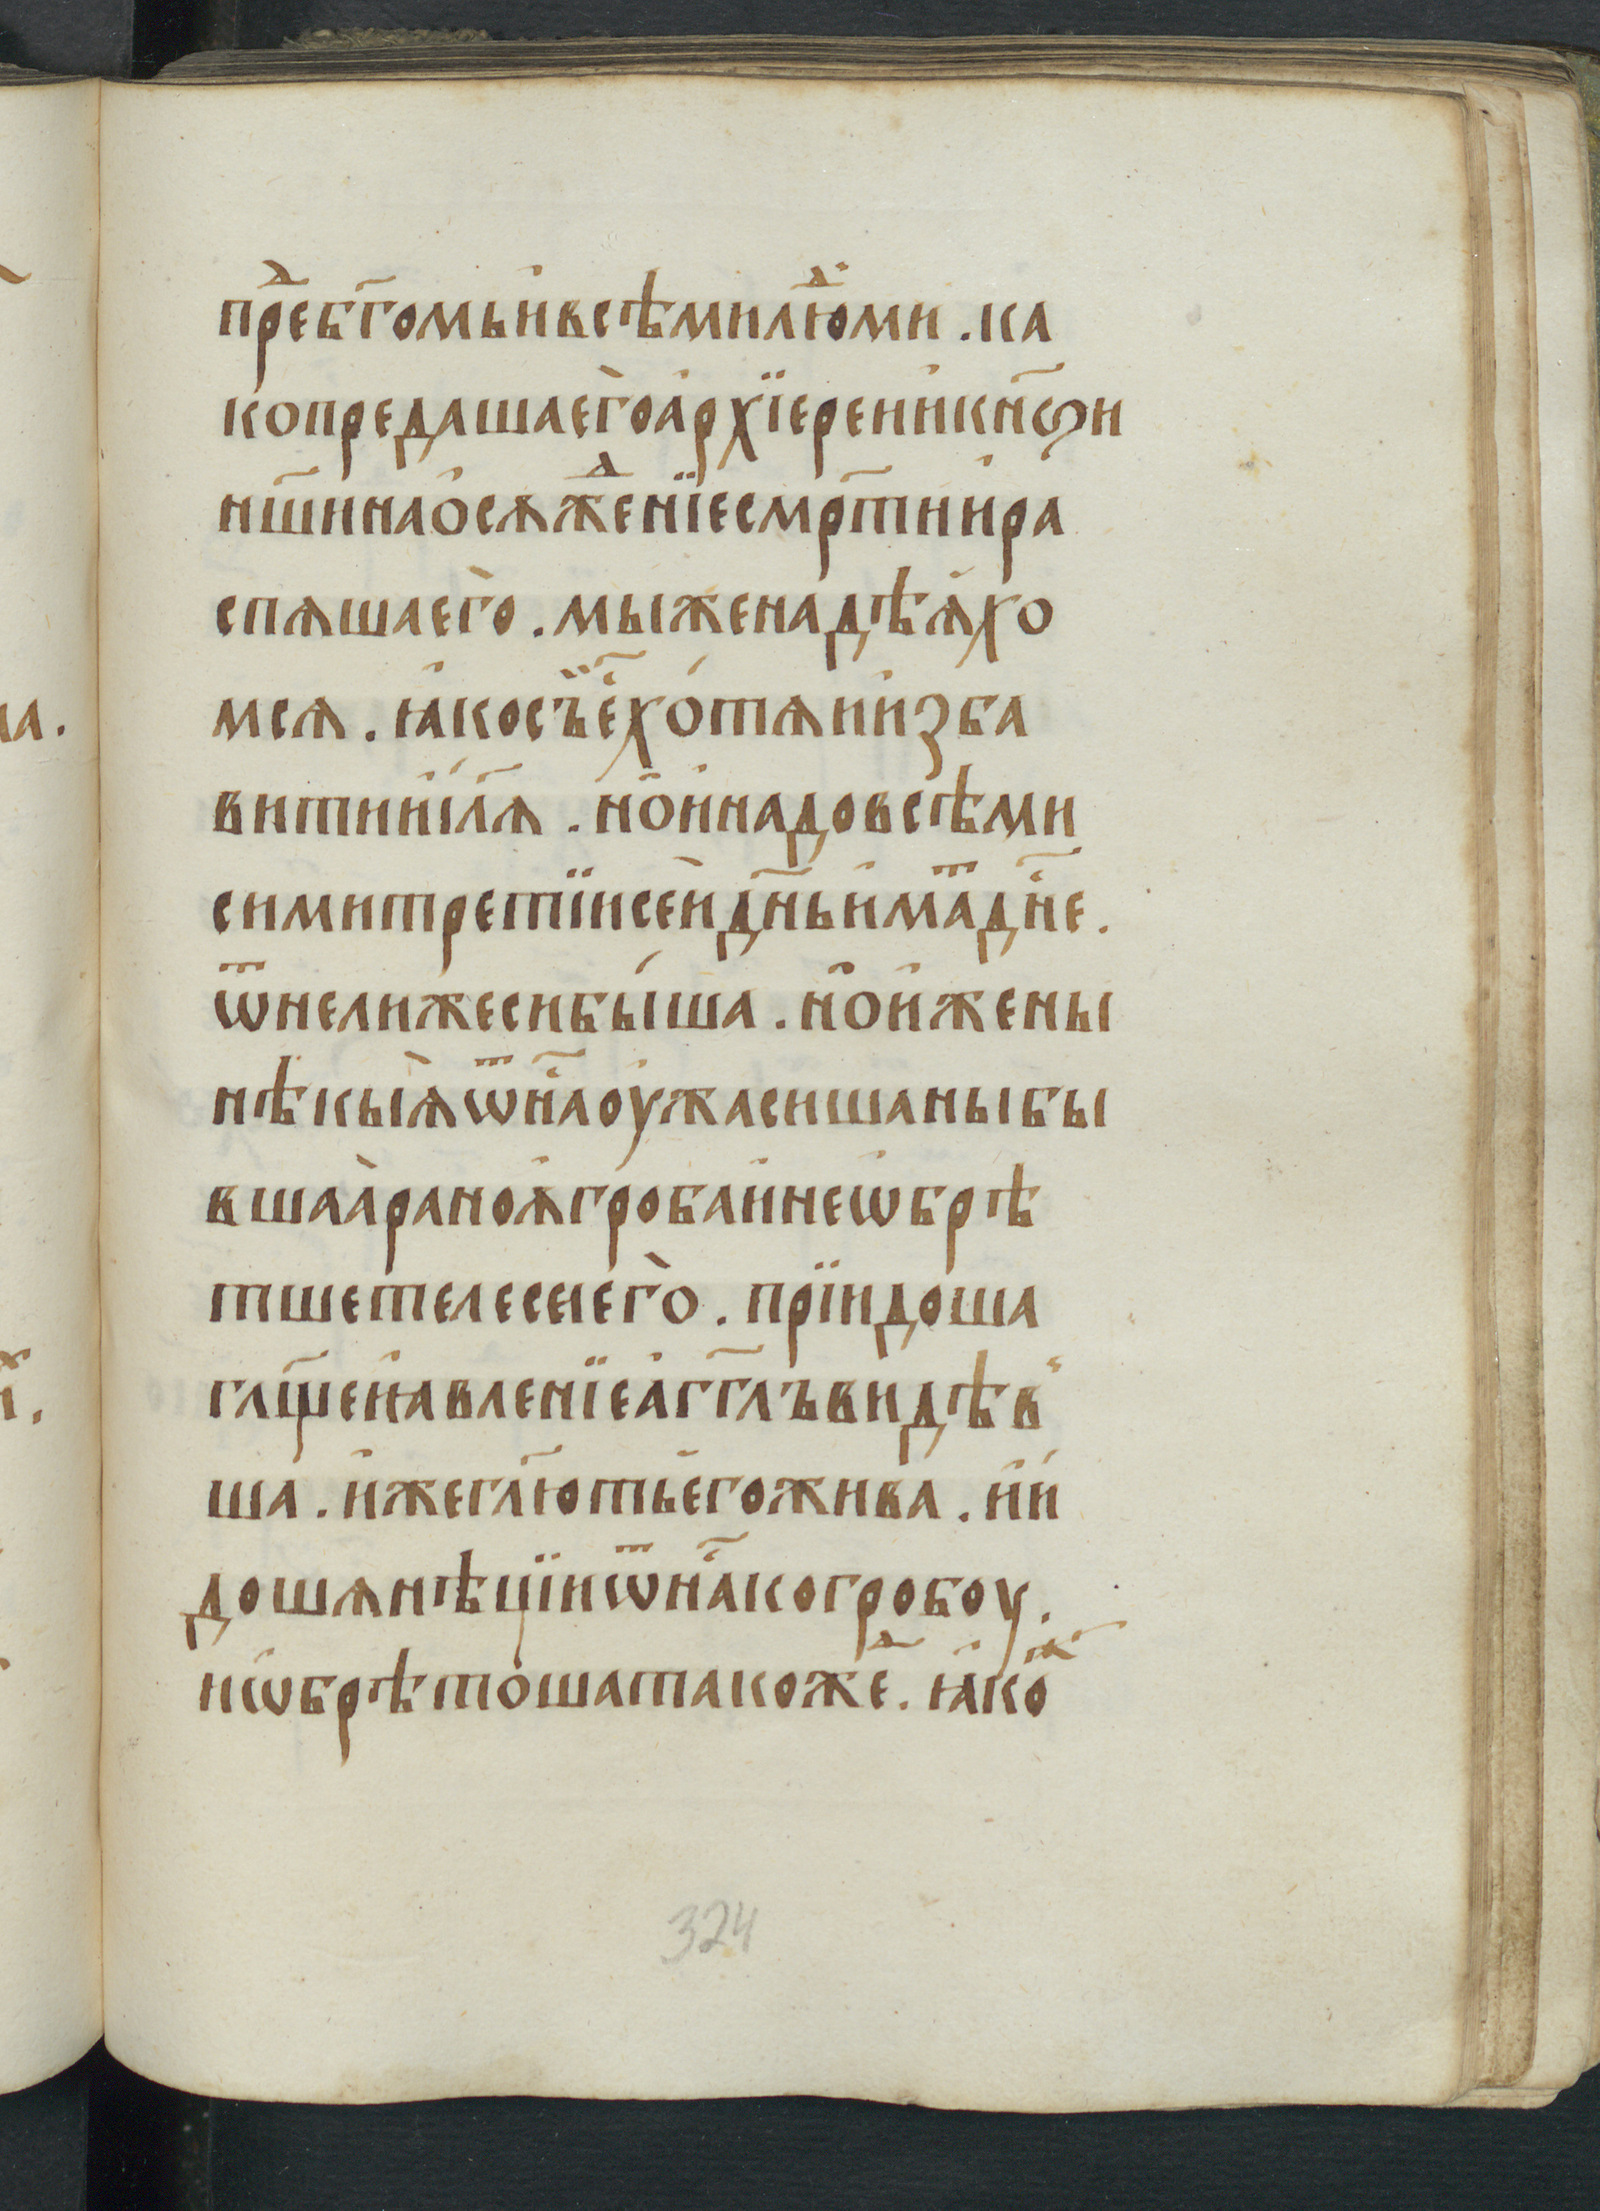 прⷣебг҃омьи҆всѣмилю̑ⷣми . ка
копредашаего̀а҆рхїереии҆кн҃ѕи
нш҃инао҆сѧжⷣенїесмрт҃ии҆ра
спѧшаего̀ . мыженадѣѧ҆хо
мсѧ . ꙗ҆косъ̈е҆҃хо́тѧии҆зба
витиі҆і́л҃ѧ . но̑и҆надовсѣми
симитретїисѐидн҃ьи҆маⷮдн҃е .
ѿнелижесибы́ша . но̑и҆жены
нѣкыѧ̀ѿна҃оу҆жасишаныбы
вшаа̀раноѧ҆гробаи҆неѡбрѣ
тшетелесеего̀ . прїидоша
гл҃щеꙗ҆вленїеа҆гг҃лъвидѣв̾
ша . и҆жегл҃ютье҆гожива . и҆и́
дошѧнѣцїиѿна҃когробоу .
иѡ҆брѣто́шатакожеⷣ . ꙗ҆коⷤ
324